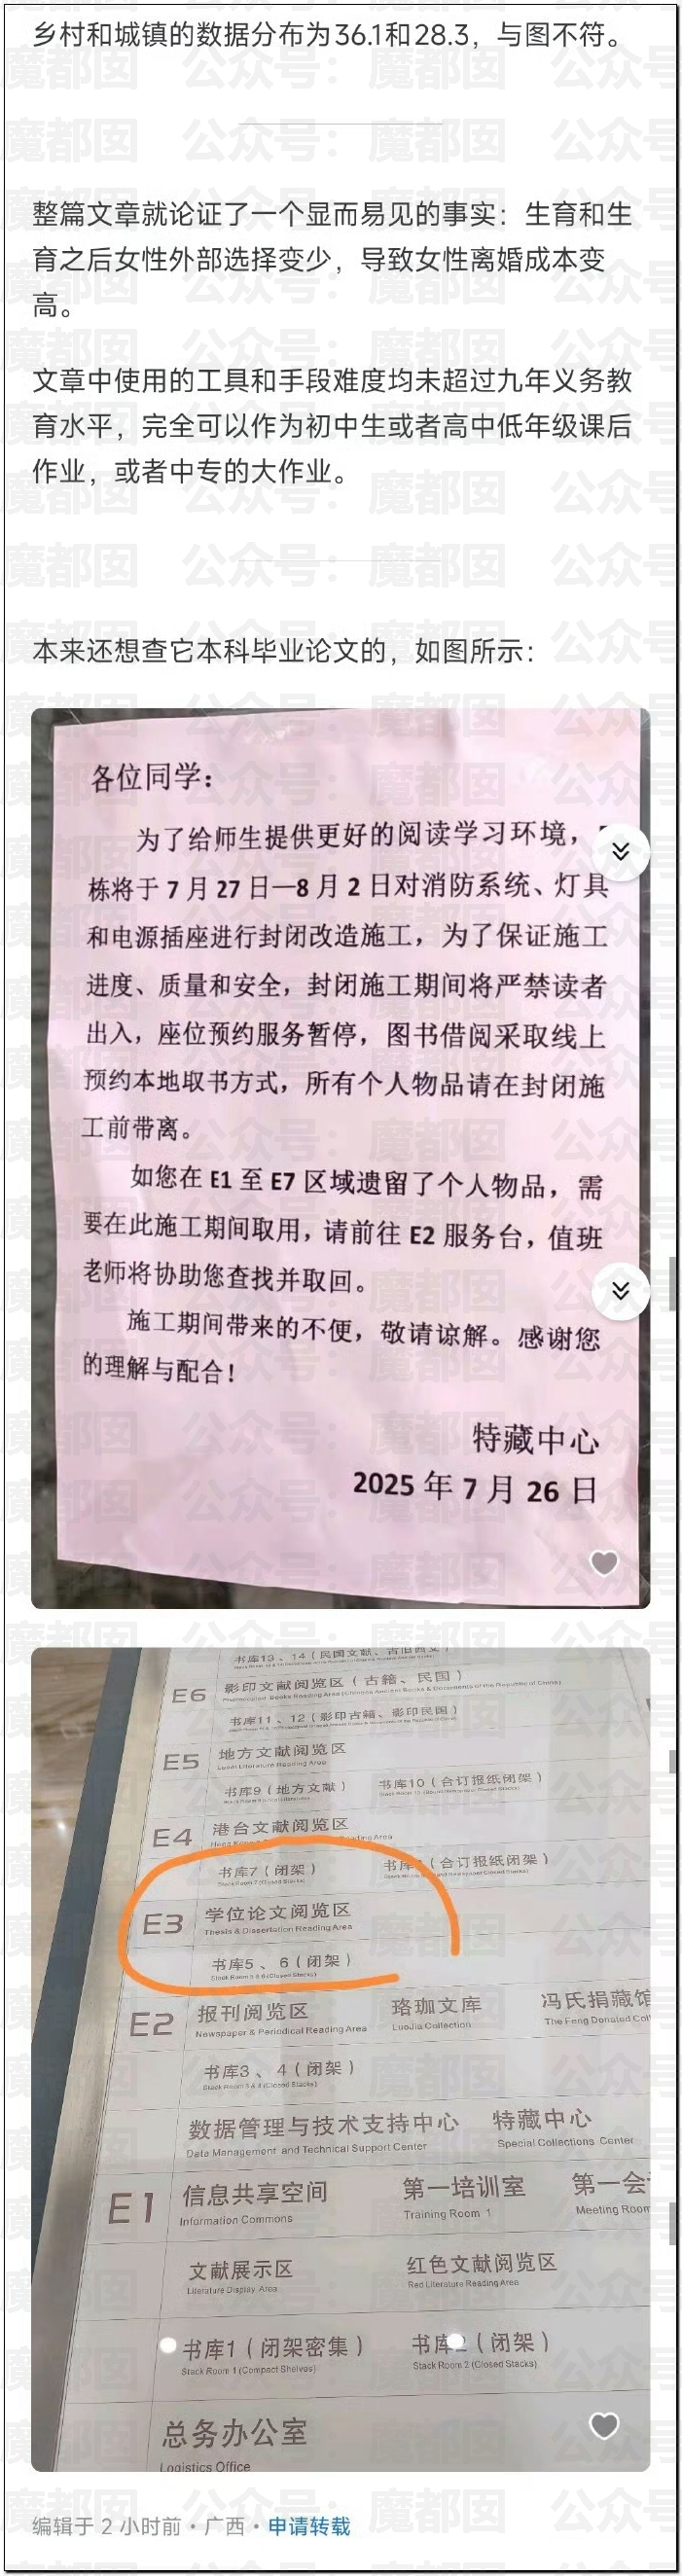 乡村和城镇的数据分布为36.1和28.3，与图不符。
整篇文章就论证了一个显而易见的事实：生育和生
育之后女性外部选择变少，导致女性离婚成本变
高。
文章中使用的工具和手段难度均未超过九年义务教
育水平，完全可以作为初中生或者高中低年级课后
作业，或者中专的大作业。
本来还想查它本科毕业论文的，如图所示：
各位同学：
为了给师生提供更好的阅读学习环境，
栋将于 7 月 27 日—8 月 2 日对消防系统、灯具
和电源插座进行封闭改造施工，为了保证施工
进度、质量和安全，封闭施工期间将严禁读者
出入，座位预约服务暂停，图书借阅采取线上
预约本地取书方式，所有个人物品请在封闭施
工前带离。
如您在 E1 至 E7 区域遗留了个人物品，需
要在此施工期间取用，请前往 E2 服务台，值班
老师将协助您查找并取回。
施工期间带来的不便，敬请谅解。感谢您
的理解与配合！
特藏中心
2025 年 7 月 26 日
书库13、14（民国文献、古旧西文）
E6 影印文献阅览区（古籍、民国）
书库11、12（影印古籍、影印民国）
E5 地方文献阅览区
Local Literature Reading Area
书库9（地方文献） 书库10（合订报纸闭架）
E4 港台文献阅览区
Reading Area
书库7（闭架） 书库（合订报纸闭架）
Stack Room 7 (Closed Stacks)
E3 学位论文阅览区
Thesis & Dissertation Reading Area
书库5、6（闭架）
Stack Room 5 & 6 (Closed Stacks)
E2 报刊阅览区 珞珈文库 冯氏捐藏馆
Newspaper & Periodical Reading Area LuoJia Collection The Feng Donated Coll
书库3、4（闭架）
Stack Room 3 & 4 (Closed Stacks)
数据管理与技术支持中心 特藏中心
Data Management and Technical Support Center Special Collections Center
E1 信息共享空间 第一培训室 第一会
Information Commons Training Room 1 Meeting Room
文献展示区 红色文献阅览区
Literature Display Area Red Literature Reading Area
书库1（闭架密集） 书库2（闭架）
Stack Room 1 (Compact Shelves) Stack Room 2 (Closed Stacks)
总务办公室
Logistics Office
编辑于 2 小时前・广西・申请转载
公众号：魔都囡